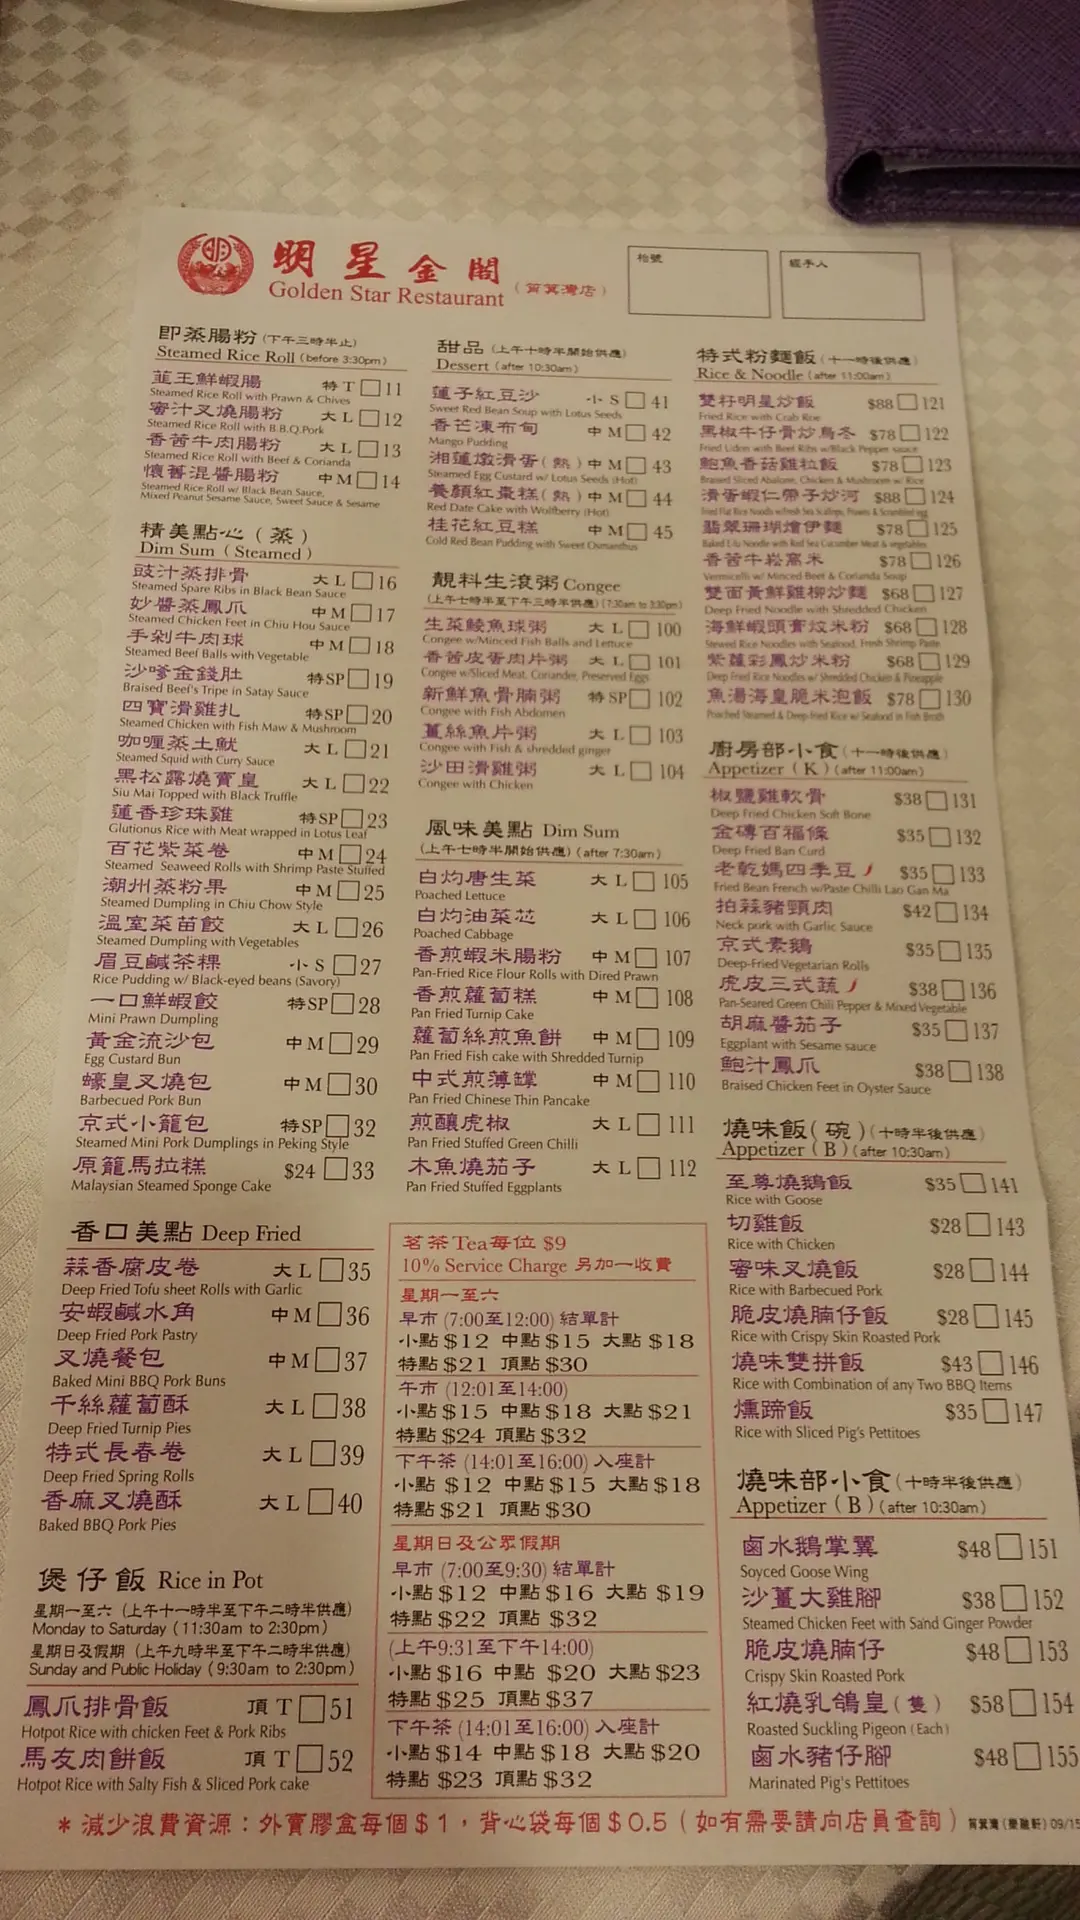 明星金閣
Golden Star Restaurant
(筲箕灣店)
枱號
經手人
即蒸腸粉 (下午三時半止)
Steamed Rice Roll (before 3:30pm)
韮王鮮蝦腸 特 T 11
Steamed Rice Roll with Prawn & Chives
蜜汁叉燒腸粉 大 L 12
Steamed Rice Roll with B.B.Q.Pork
香茜牛肉腸粉 大 L 13
Steamed Rice Roll with Beef & Corianda
懷舊混醬腸粉 中 M 14
Steamed Rice Roll w/ Black Bean Sauce,
Mixed Peanut Sesame Sauce, Sweet Sauce & Sesame
精美點心 (蒸)
Dim Sum (Steamed)
豉汁蒸排骨 大 L 16
Steamed Spare Ribs in Black Bean Sauce
妙醬蒸鳳爪 中 M 17
Steamed Chicken Feet in Chiu Hou Sauce
手剁牛肉球 中 M 18
Steamed Beef Balls with Vegetable
沙嗲金錢肚 特SP 19
Braised Beef's Tripe in Satay Sauce
四寶滑雞扎 特SP 20
Steamed Chicken with Fish Maw & Mushroom
咖喱蒸土魷 大 L 21
Steamed Squid with Curry Sauce
黑松露燒賣皇 大 L 22
Siu Mai Topped with Black Truffle
蓮香珍珠雞 特SP 23
Glutionus Rice with Meat wrapped in Lotus Leaf
百花紫菜卷 中 M 24
Steamed Seaweed Rolls with Shrimp Paste Stuffed
潮州蒸粉果 中 M 25
Steamed Dumpling in Chiu Chow Style
溫室菜苗餃 大 L 26
Steamed Dumpling with Vegetables
眉豆鹹茶粿 小 S 27
Rice Pudding w/ Black-eyed beans (Savory)
一口鮮蝦餃 特SP 28
Mini Prawn Dumpling
黃金流沙包 中 M 29
Egg Custard Bun
蠔皇叉燒包 中 M 30
Barbecued Pork Bun
京式小籠包 特SP 32
Steamed Mini Pork Dumplings in Peking Style
原籠馬拉糕 $24 33
Malaysian Steamed Sponge Cake
香口美點 Deep Fried
蒜香腐皮卷 大 L 35
Deep Fried Tofu sheet Rolls with Garlic
安蝦鹹水角 中 M 36
Deep Fried Pork Pastry
叉燒餐包 中 M 37
Baked Mini BBQ Pork Buns
千絲蘿蔔酥 大 L 38
Deep Fried Turnip Pies
特式長春卷 大 L 39
Deep Fried Spring Rolls
香麻叉燒酥 大 L 40
Baked BBQ Pork Pies
煲仔飯 Rice in Pot
星期一至六 (上午十一時半至下午二時半供應)
Monday to Saturday (11:30am to 2:30pm)
星期日及假期 (上午九時半至下午二時半供應)
Sunday and Public Holiday (9:30am to 2:30pm)
鳳爪排骨飯 頂 T 51
Hotpot Rice with chicken Feet & Pork Ribs
馬友肉餅飯 頂 T 52
Hotpot Rice with Salty Fish & Sliced Pork cake
甜品 (上午十時半開始供應)
Dessert (after 10:30am)
蓮子紅豆沙 小 S 41
Sweet Red Bean Soup with Lotus Seeds
香芒凍布甸 中 M 42
Mango Pudding
湘蓮燉滑蛋(熱) 中 M 43
Steamed Egg Custard w/ Lotus Seeds (Hot)
養顏紅棗糕(熱) 中 M 44
Red Date Cake with Wolfberry (Hot)
桂花紅豆糕 中 M 45
Cold Red Bean Pudding with Sweet Osmanthus
靚料生滾粥 Congee
(上午七時半至下午三時半供應) (7:30am to 3:30pm)
生菜鯪魚球粥 大 L 100
Congee w/Minced Fish Balls and Lettuce
香茜皮蛋肉片粥 大 L 101
Congee w/Sliced Meat, Coriander, Preserved Eggs
新鮮魚骨腩粥 特 SP 102
Congee with Fish Abdomen
薑絲魚片粥 大 L 103
Congee with Fish & shredded ginger
沙田滑雞粥 大 L 104
Congee with Chicken
風味美點 Dim Sum
(上午七時半開始供應) (after 7:30am)
白灼唐生菜 大 L 105
Poached Lettuce
白灼油菜芯 大 L 106
Poached Cabbage
香煎蝦米腸粉 中 M 107
Pan-Fried Rice Flour Rolls with Dired Prawn
香煎蘿蔔糕 中 M 108
Pan Fried Turnip Cake
蘿蔔絲煎魚餅 中 M 109
Pan Fried Fish cake with Shredded Turnip
中式煎薄罉 中 M 110
Pan Fried Chinese Thin Pancake
煎釀虎椒 大 L 111
Pan Fried Stuffed Green Chilli
木魚燒茄子 大 L 112
Pan Fried Stuffed Eggplants
茗茶Tea每位 $9
10% Service Charge 另加一收費
星期一至六
早市 (7:00至12:00) 結單計
小點 $12 中點 $15 大點 $18
特點 $21 頂點 $30
午市 (12:01至14:00)
小點 $15 中點 $18 大點 $21
特點 $24 頂點 $32
下午茶 (14:01至16:00) 入座計
小點 $12 中點 $15 大點 $18
特點 $21 頂點 $30
星期日及公眾假期
早市 (7:00至9:30) 結單計
小點 $12 中點 $16 大點 $19
特點 $22 頂點 $32
(上午9:31至下午14:00)
小點 $16 中點 $20 大點 $23
特點 $25 頂點 $37
下午茶 (14:01至16:00) 入座計
小點 $14 中點 $18 大點 $20
特點 $23 頂點 $32
特式粉麵飯 (十一時後供應)
Rice & Noodle (after 11:00am)
雙籽明星炒飯 $88 121
Fried Rice with Crab Roe
黑椒牛仔骨炒烏冬 $78 122
Fried Udon with Beef Ribs w/Black Pepper sauce
鮑魚香菇雞粒飯 $78 123
Braised Sliced Abalone, Chicken & Mushroom w/ Rice
滑蛋蝦仁帶子炒河 $88 124
Fried Flat Rice Noodls w/Fresh Sea Scallops, Prawns & Scrambled egg
翡翠珊瑚燴伊麵 $78 125
Baked E-fu Noodle with Red Sea Cucumber Meat & vegetables
香茜牛崧窩米 $78 126
Vermicelli w/ Minced Beef & Corianda Soup
雙面黃鮮雞柳炒麵 $68 127
Deep Fried Noodle with Shredded Chicken
海鮮蝦頭膏炆米粉 $68 128
Stewed Rice Noodles with Seafood, Fresh Shrimp Paste
紫蘿彩鳳炒米粉 $68 129
Deep Fried Rice Noodles w/ Shredded Chicken & Pineapple
魚湯海皇脆米泡飯 $78 130
Poached Steamed & Deep-fried Rice w/ Seafood in Fish Broth
廚房部小食 (十一時後供應)
Appetizer (K) (after 11:00am)
椒鹽雞軟骨 $38 131
Deep Fried Chicken Soft Bone
金磚百福條 $35 132
Deep Fried Ban Curd
老乾媽四季豆 $35 133
Fried Bean French w/Paste Chilli Lao Gan Ma
拍蒜豬頸肉 $42 134
Neck pork with Garlic Sauce
京式素鵝 $35 135
Deep-Fried Vegetarian Rolls
虎皮三式蔬 $38 136
Pan-Seared Green Chili Pepper & Mixed Vegetable
胡麻醬茄子 $35 137
Eggplant with Sesame sauce
鮑汁鳳爪 $38 138
Braised Chicken Feet in Oyster Sauce
燒味飯(碗) (十時半後供應)
Appetizer (B) (after 10:30am)
至尊燒鵝飯 $35 141
Rice with Goose
切雞飯 $28 143
Rice with Chicken
蜜味叉燒飯 $28 144
Rice with Barbecued Pork
脆皮燒腩仔飯 $28 145
Rice with Crispy Skin Roasted Pork
燒味雙拼飯 $43 146
Rice with Combination of any Two BBQ Items
燻蹄飯 $35 147
Rice with Sliced Pig's Pettitoes
燒味部小食 (十時半後供應)
Appetizer (B) (after 10:30am)
鹵水鵝掌翼 $48 151
Soyced Goose Wing
沙薑大雞腳 $38 152
Steamed Chicken Feet with Sand Ginger Powder
脆皮燒腩仔 $48 153
Crispy Skin Roasted Pork
紅燒乳鴿皇(隻) $58 154
Roasted Suckling Pigeon (Each)
鹵水豬仔腳 $48 155
Marinated Pig's Pettitoes
* 減少浪費資源：外賣膠盒每個$1，背心袋每個$0.5 (如有需要請向店員查詢)
筲箕灣 (樂融軒) 09/15